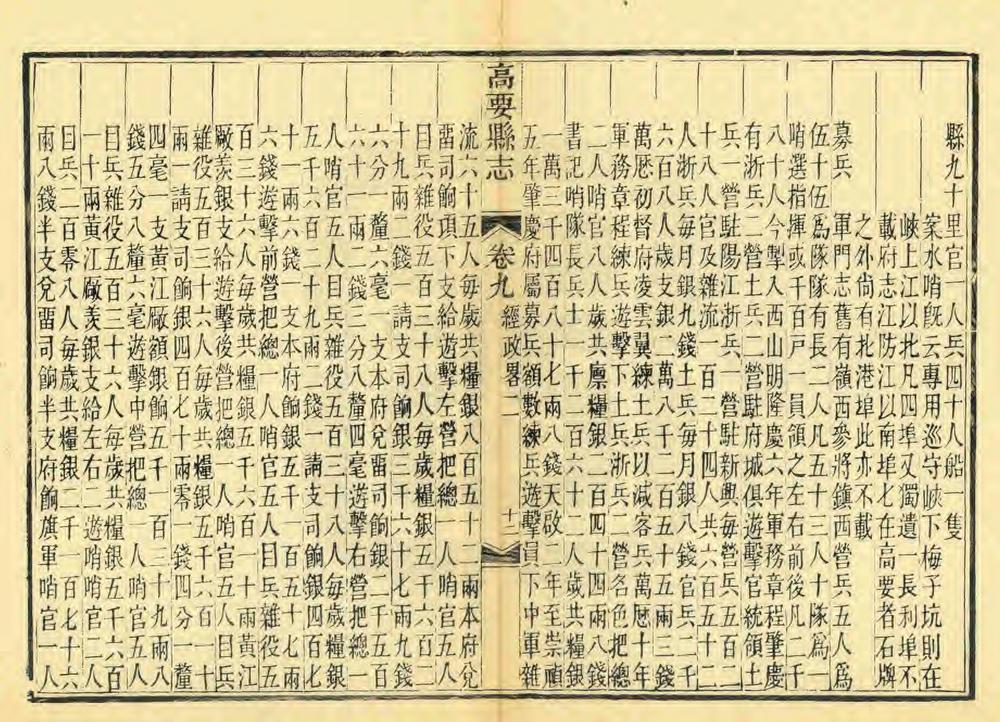 縣九十里官一人兵四十人船一隻
案水哨旣云專用巡守峽下梅子坑則在
峽上江以北凡四埠又獨遺一長利埠不
載府志江防江以南埠七在高要者石牌
之外尙有北港埠此亦不載
募兵 軍門志舊有嶺西參將鎭西營兵五人爲
伍十伍爲隊隊有長二人凡五十三人十隊爲一
哨選指揮或千百戸一員領之左右前後凡二千
八十人今掣入西山明隆慶六年軍務章程肇慶
有浙兵二營土兵二營駐府城俱遊擊官統領土
兵一營駐陽江浙兵一營駐新興每營兵五百二
十八人官及雜流一百二十四人共六百五十二
人浙兵每月銀九錢土兵每月銀八錢官兵二千
六百八人歲支銀二萬八千七百六十五兩三錢
萬厯初督府凌雲翼練土兵以減客兵萬厯十年
軍務章程練兵遊擊下土兵浙兵二營名色把總
二人哨官八人歲共廪糧銀二百四十四兩八錢
書記哨隊長兵士一千二百六十二人歲共糧銀
一萬三千四百八十七兩八錢天啟二年至崇禎
五年肇慶府屬募兵額數練兵遊擊員下中軍雜
高要縣志 卷九 經政畧二 十二
流六十五人每歲共糧銀八百五十二兩本府兌
畱司餉項下支給遊擊左營把總一人哨官五人
目兵雜役五百三十八人每歲糧銀五千六百二
十九兩二錢一請支司餉銀三千六十七兩九錢
六分一釐六毫一支本府兌畱司餉銀二千五百
六十一兩二錢三分八釐四毫遊擊右營把總一
人哨官五人目兵雜役五百三十八人每歲糧銀
五千六百二十九兩二錢一請支司餉銀四百七
十一兩六錢一支本府餉銀五千一百五十七兩
六錢遊擊前營把總一人哨官五人目兵雜役五
百三十六人每歲共糧銀五千六百一十兩黃江
廠羨銀支給遊擊後營把總一人哨官五人目兵
雜役五百三十六人每歲共糧銀五千六百一十
兩一請支司餉銀四百七十兩零一錢四分一釐
四毫一支黃江廠額銀五千一百三十九兩八
錢五分八釐六毫遊擊中營把總一人哨官五人
目兵雜役五百三十六人每歲共糧銀五千六百
一十兩黃江廠羨銀支給左右二遊哨哨官二人
目兵二百零八人每歲共糧銀二千一百七十六
兩八錢半支兌畱司餉半支府餉旗軍哨官一人